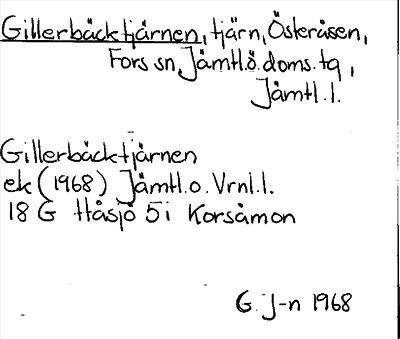 Gillerbäcktjärnen, tjärn, Österåsen,
Fors sn, Jämtl.ö.doms.tg,
Jämtl.l.
Gillerbäcktjärnen
ek (1968) Jämtl.o.Vrnl.l.
18 G Håsjö 5i Korsåmon
G. J-n 1968